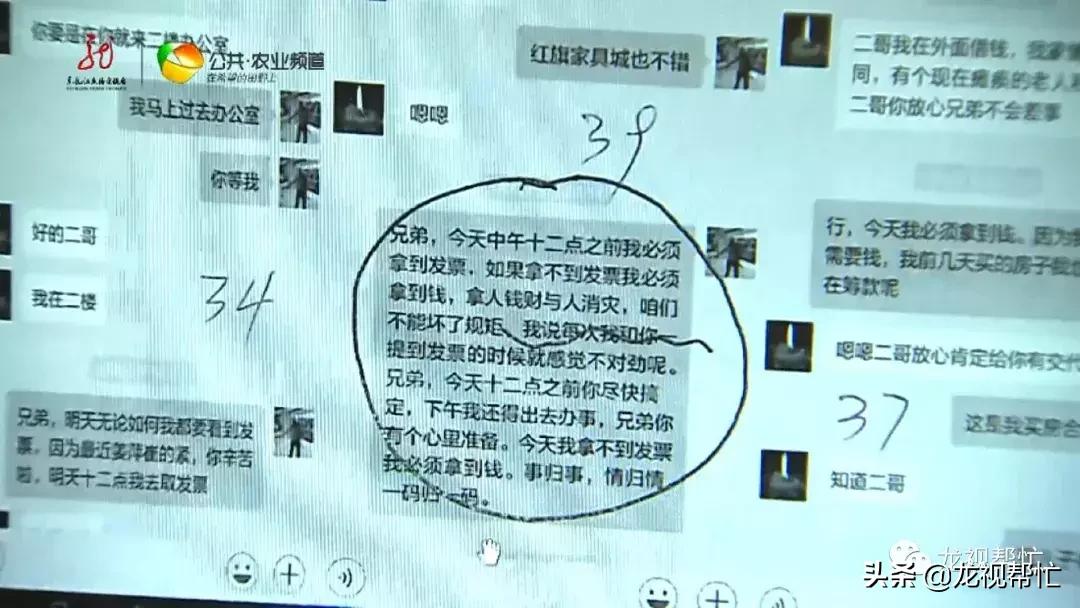 你要是在你就来二楼办公室
公共·农业频道
在希望的田野上
我马上过去办公室
嗯嗯
你等我
好的二哥
我在二楼
34
兄弟，明天无论如何我都要看到发
票，因为最近姜萍崔的紧，你辛苦
啦，明天十二点我去取发票
红旗家具城也不错
39
兄弟，今天中午十二点之前我必须
拿到发票，如果拿不到发票我必须
拿到钱，拿人钱财与人消灾，咱们
不能坏了规矩，我说每次我和你一
提到发票的时候就感觉不对劲呢。
兄弟，今天十二点之前你尽快搞
定，下午我还得出去办事，兄弟你
有个心里准备。今天我拿不到发票
我必须拿到钱。事归事，情归情
一码归一码。
二哥我在外面借钱，我
同，有个现在瘫痪的老人
二哥你放心兄弟不会差事
行，今天我必须拿到钱。因为
需要钱，我前几天买的房子
在筹款呢
嗯嗯二哥放心肯定给你有交代
37
这是我买房合
知道二哥
龙视帮忙
头条 @龙视帮忙